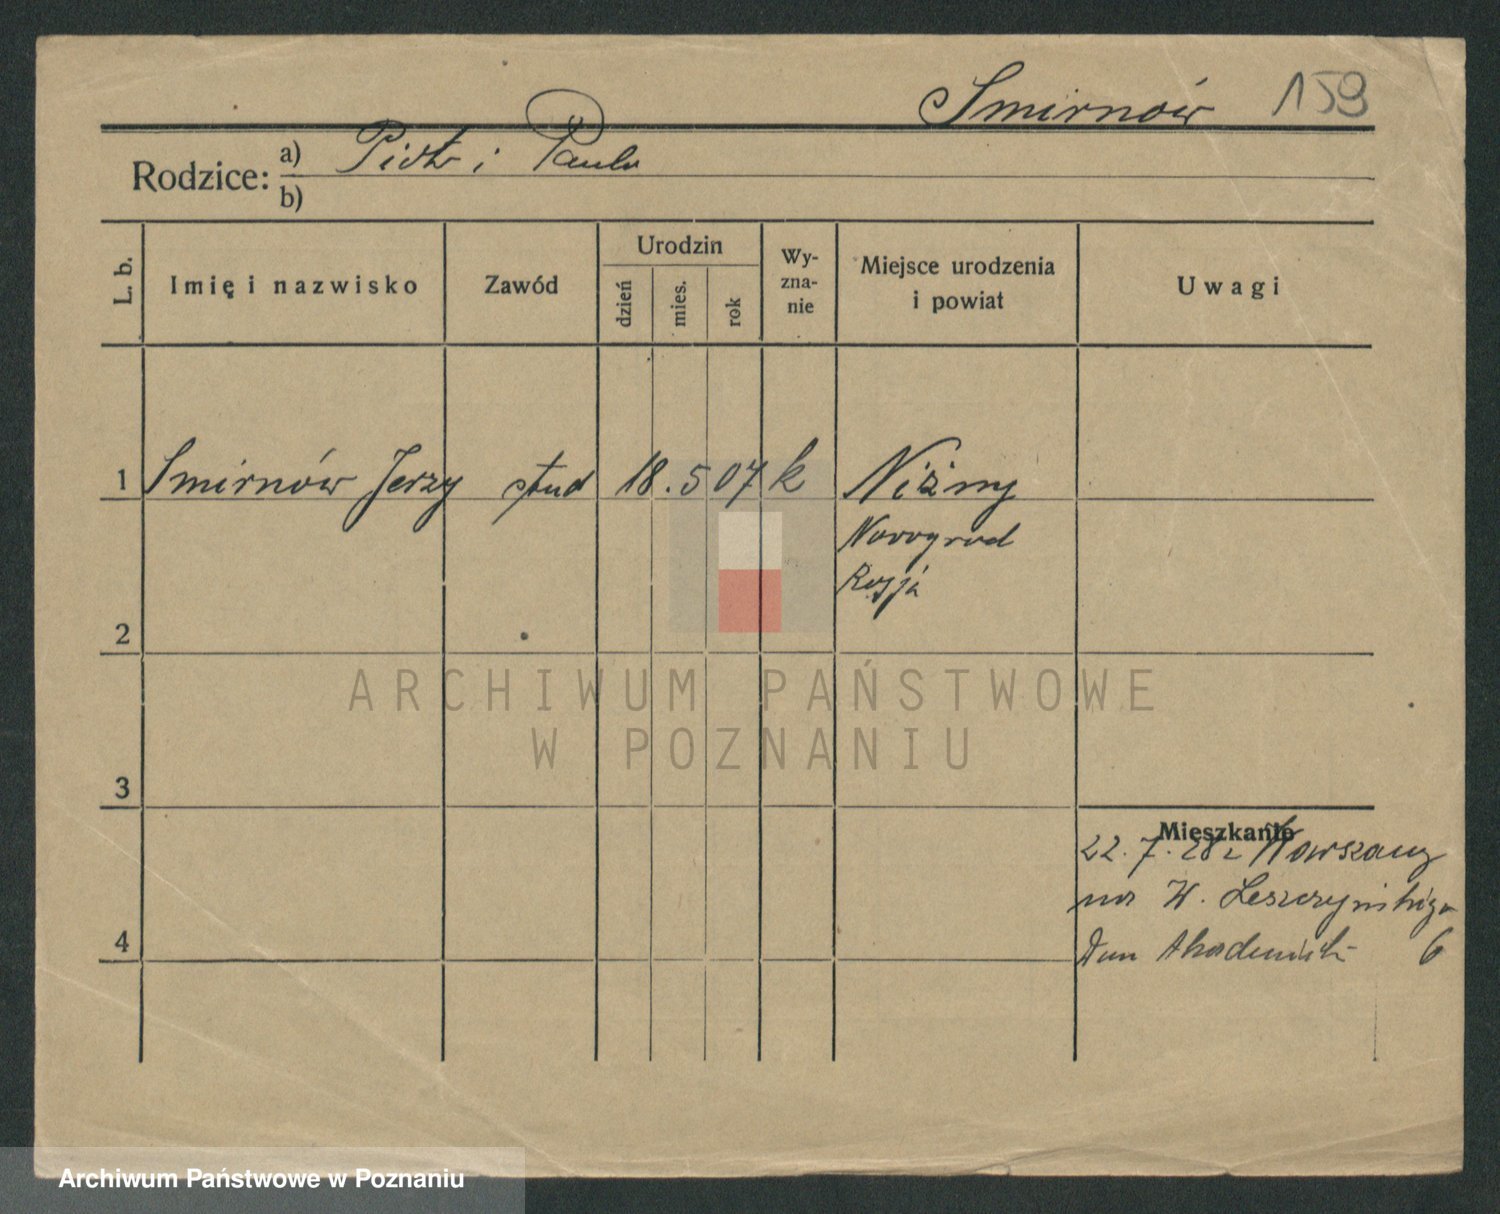 Smirnów 159
Rodzice: a) Piotr i Paula
b)
L. b.
Imię i nazwisko
Zawód
Urodzin
dzień
mies.
rok
Wy-
zna-
nie
Miejsce urodzenia
i powiat
Uwagi
1 Smirnów Jerzy stud 18. 5 07 k Niżny
Nowogrod
Rosja
2
ARCHIWUM PAŃSTWOWE
W POZNANIU
3
Mieszkanie
22. 7. 28 z Warszawy
na W. Leszczyńskiego
4 Dom Akademicki 6
Archiwum Państwowe w Poznaniu